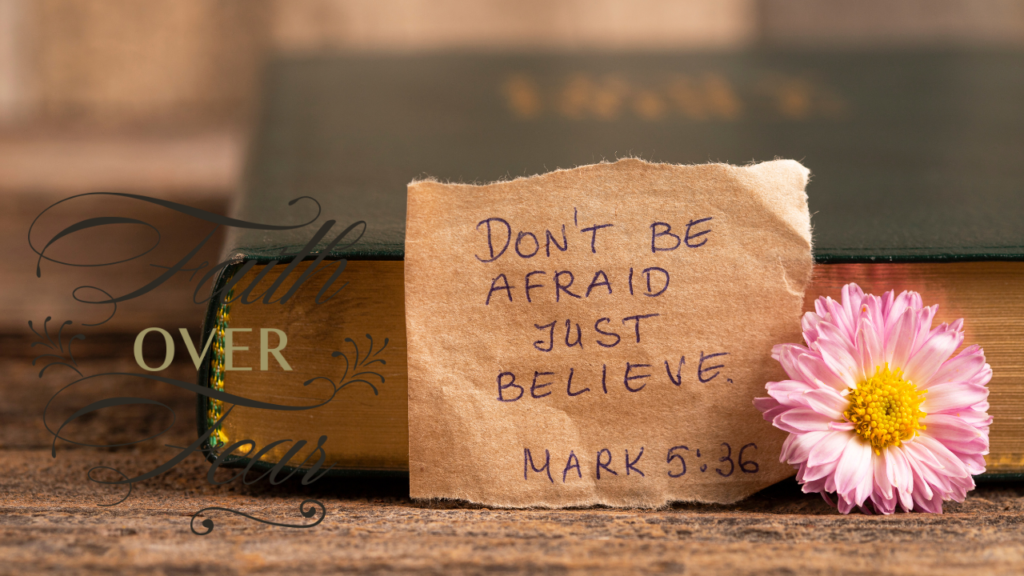 Faith
OVER
Fear
DON'T BE
AFRAID
JUST
BELIEVE.
MARK 5:36